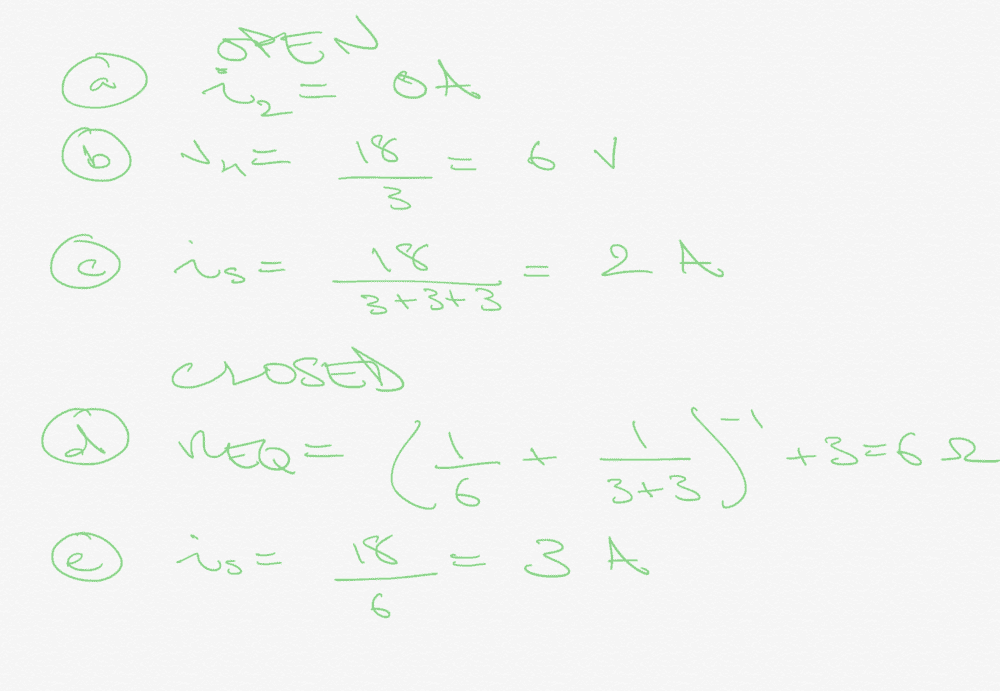 OPEN
(a) i₂ = 0A
(b) vₓ = 18/3 = 6 V
(c) iₛ = 18/(3+3+3) = 2 A
CLOSED
(d) REQ = (1/6 + 1/(3+3))⁻¹ + 3 = 6 Ω
(e) iₛ = 18/6 = 3 A